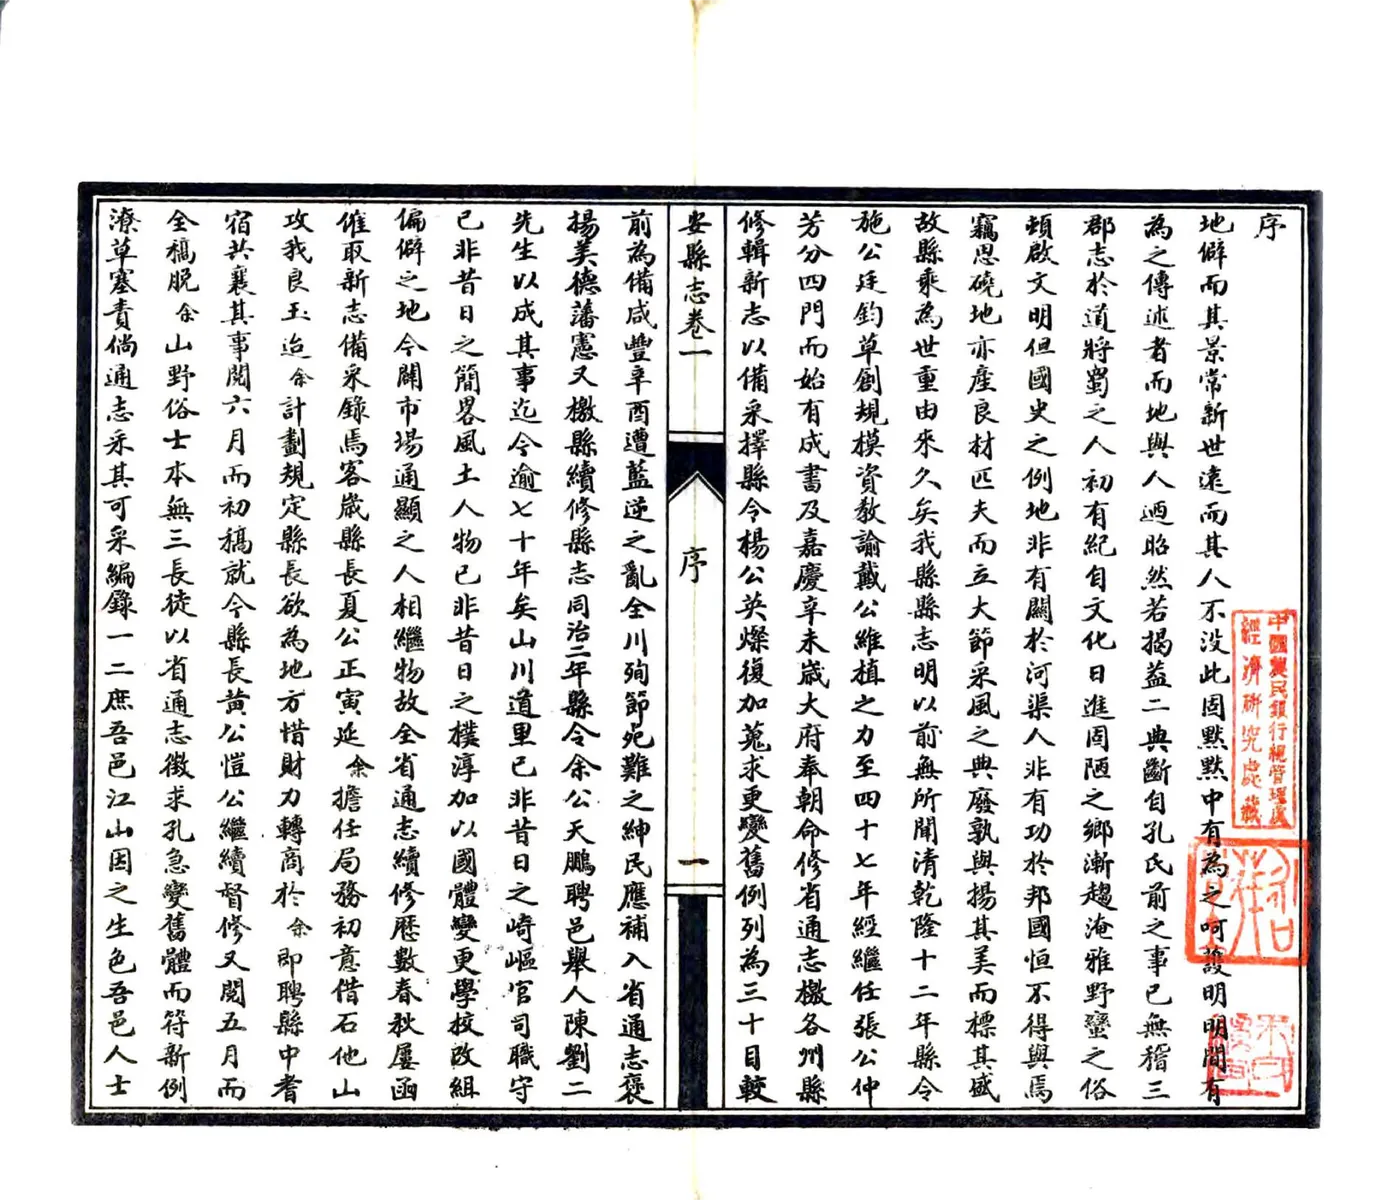 序
地僻而其景常新世遠而其人不没此固默默中有為之呵護明明間有
為之傳述者而地與人迺昭然若揭蓋二典斷自孔氏前之事已無稽三
郡志於道將蜀之人初有紀自文化日進固陋之鄉漸趨淹雅野蠻之俗
頓啟文明但國史之例地非有關於河渠人非有功於邦國恒不得與焉
竊思磽地亦產良材匹夫而立大節采風之典廢孰與揚其美而標其盛
故縣乘為世重由來久矣我縣縣志明以前無所聞清乾隆十二年縣令
施公廷鈞草創規模資教諭戴公維植之力至四十七年經繼任張公仲
芳分四門而始有成書及嘉慶辛未歲大府奉朝命修省通志檄各州縣
修輯新志以備采擇縣令楊公英燦復加蒐求更變舊例列為三十目較
安縣志卷一
序
一
前為備咸豐辛酉遭藍逆之亂全川殉節死難之紳民應補入省通志褒
揚美德藩憲又檄縣續修縣志同治二年縣令余公天鵬聘邑舉人陳劉二
先生以成其事迄今逾七十年矣山川道里已非昔日之崎嶇官司職守
已非昔日之簡畧風土人物已非昔日之樸淳加以國體變更學校改組
偏僻之地今闢市場通顯之人相繼物故全省通志續修歷數春秋屢函
催取新志備采錄焉客歲縣長夏公正寅延余擔任局務初意借石他山
攻我良玉迨余計劃規定縣長欲為地方惜財力轉商於余即聘縣中耆
宿共襄其事閱六月而初稿就今縣長黃公愷公繼續督修又閱五月而
全稿脫余山野俗士本無三長徒以省通志徵求孔急變舊體而符新例
潦草塞責倘通志采其可采編錄一二庶吾邑江山因之生色吾邑人士
中國農民銀行總管理處
經濟研究處藏